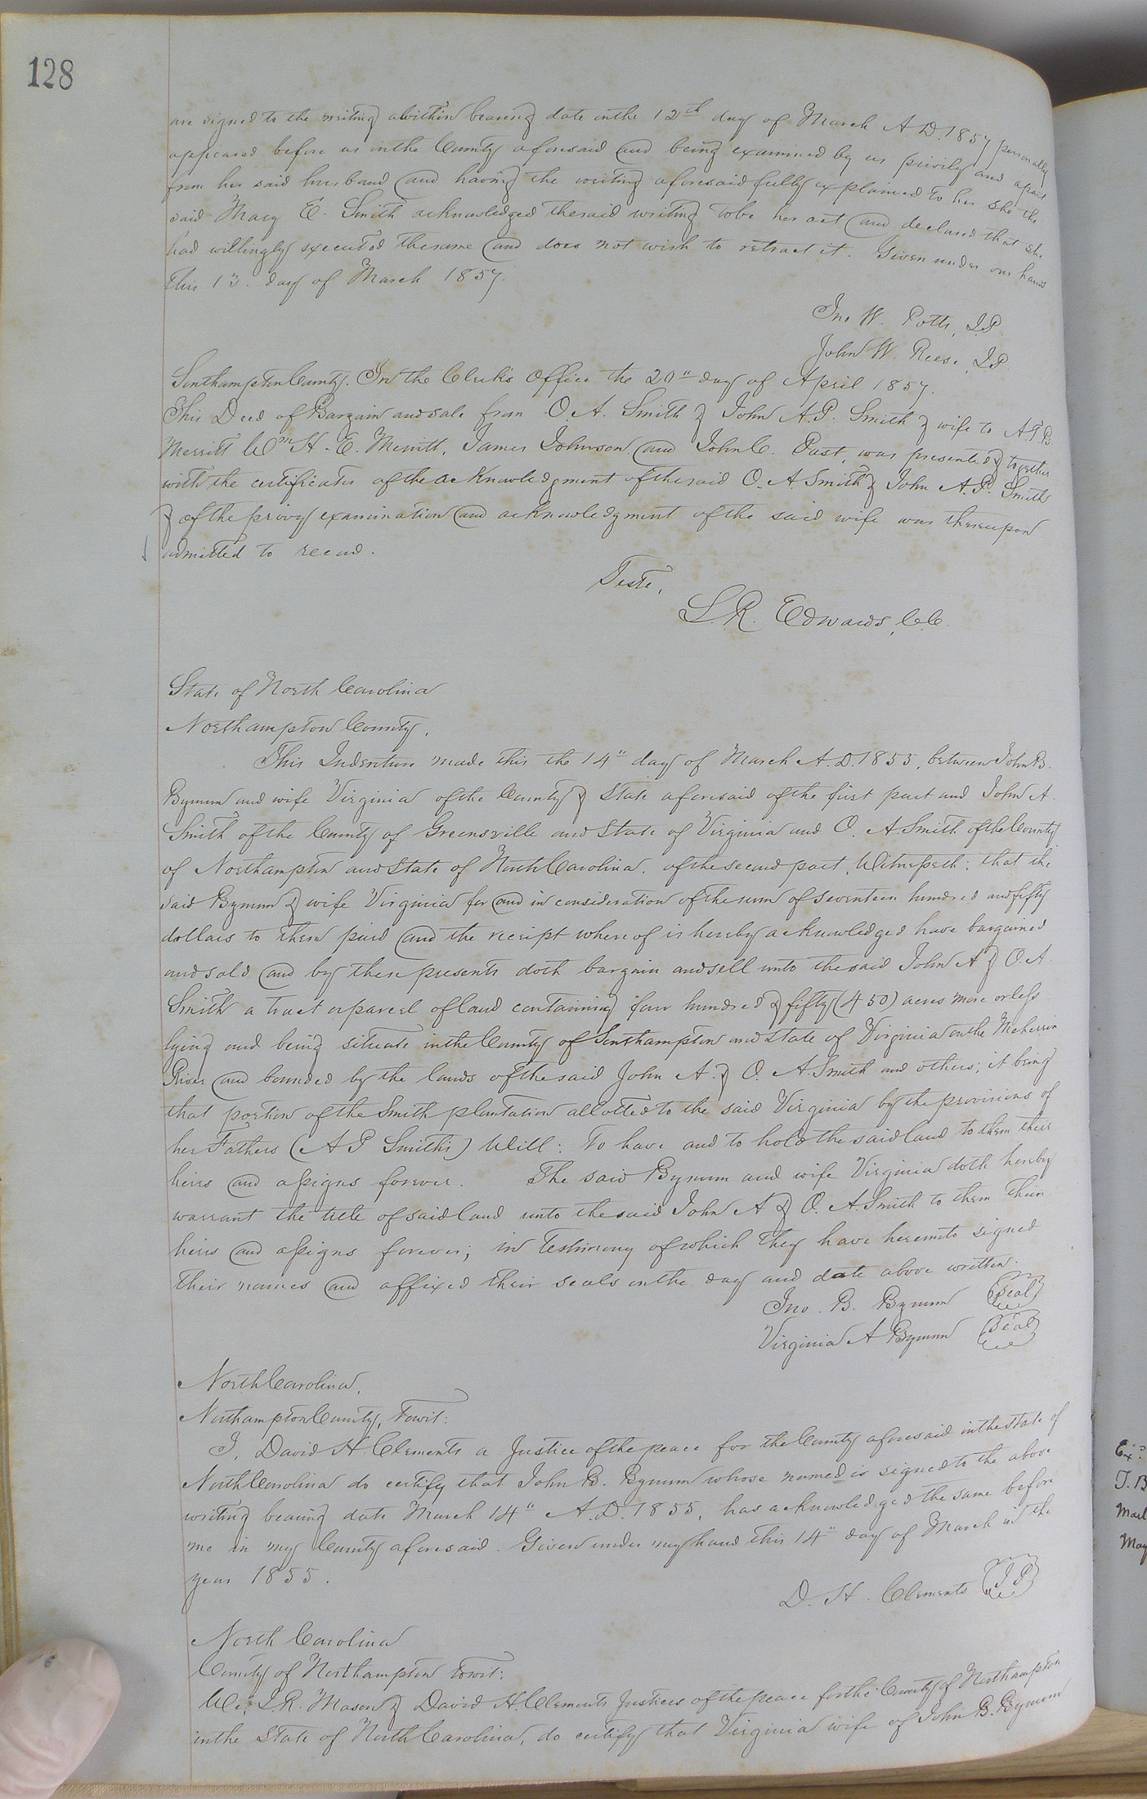 128
are signed to the writing within bearing date on the 12th day of March A.D. 1857 personally
appeared before us in the County aforesaid and being examined by us privily and apart
from her said husband and having the writing aforesaid fully explained to her she the
said Mary E. Smith acknowledged the said writing to be her act and declared that she
had willingly executed the same and does not wish to retract it. Given under our hands
this 13. day of March 1857.
Jno W. Potts, J.P.
John W. Reese, J.P.
Southampton County. In the Clerk's Office the 20" day of April 1857.
This Deed of Bargain and sale from O. A. Smith & John A. P. Smith & wife to A. J. B.
Merritt Wm H. E. Merritt, James Johnson and John C. Past, was presented & together
with the certificates of the acknowledgment of the said O. A Smith & John A. P. Smith
& of the privy examination and acknowledgment of the said wife was thereupon
admitted to record.
Teste,
L. R. Edwards, C.C.
State of North Carolina
Northampton County.
This Indenture made this the 14" day of March A.D. 1855, between John B.
Bynum and wife Virginia of the County & State aforesaid of the first part and John A.
Smith of the County of Greensville and State of Virginia and O. A Smith of the County
of Northampton and State of North Carolina, of the second part, Witnesseth: that the
said Bynum & wife Virginia for and in consideration of the sum of seventeen hundred and fifty
dollars to them paid and the receipt whereof is hereby acknowledged have bargained
and sold and by these presents doth bargain and sell unto the said John A & O. A.
Smith a tract or parcel of land containing four hundred & fifty (450) acres more or less
lying and being situate in the County of Southampton and State of Virginia on the Meherrin
River and bounded by the lands of the said John A. & O. A Smith and others, it being
that portion of the Smith plantation allotted to the said Virginia by the provisions of
her Fathers (A P Smith's) Will: To have and to hold the said land to them their
heirs and assigns forever. The said Bynum and wife Virginia doth hereby
warrant the title of said land unto the said John A & O. A. Smith to them their
heirs and assigns forever; in testimony of which they have hereunto signed
their names and affixed their seals on the day and date above written.
Jno. B. Bynum (Seal)
Virginia A Bynum (Seal)
North Carolina,
Northampton County, Towit:
I, David H Clements a Justice of the peace for the County aforesaid in the State of
North Carolina do certify that John B. Bynum whose named is signed to the above
writing bearing date March 14" A.D. 1855, has acknowledged the same before
me in my County aforesaid. Given under my hand this 14" day of March in the
year 1855.
D. H. Clements (J P)
North Carolina
County of Northampton Towit:
We, J. R. Mason & David H. Clements Justices of the peace for the County of Northampton
in the State of North Carolina, do certify that Virginia wife of John B. Bynum